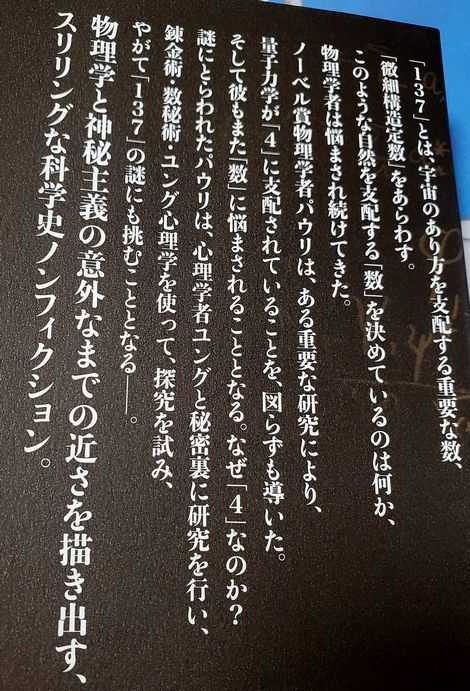 「137」とは、宇宙のあり方を支配する重要な数、
「微細構造定数」をあらわす。
このような自然を支配する「数」を決めているのは何か、
物理学者は悩まされ続けてきた。
ノーベル賞物理学者パウリは、ある重要な研究により、
量子力学が「4」に支配されていることを、図らずも導いた。
そして彼もまた「数」に悩まされることとなる。なぜ「4」なのか?
謎にとらわれたパウリは、心理学者ユングと秘密裏に研究を行い、
錬金術・数秘術・ユング心理学を使って、探究を試み、
やがて「137」の謎にも挑むこととなる——。
物理学と神秘主義の意外なまでの近さを描き出す、
スリリングな科学史ノンフィクション。